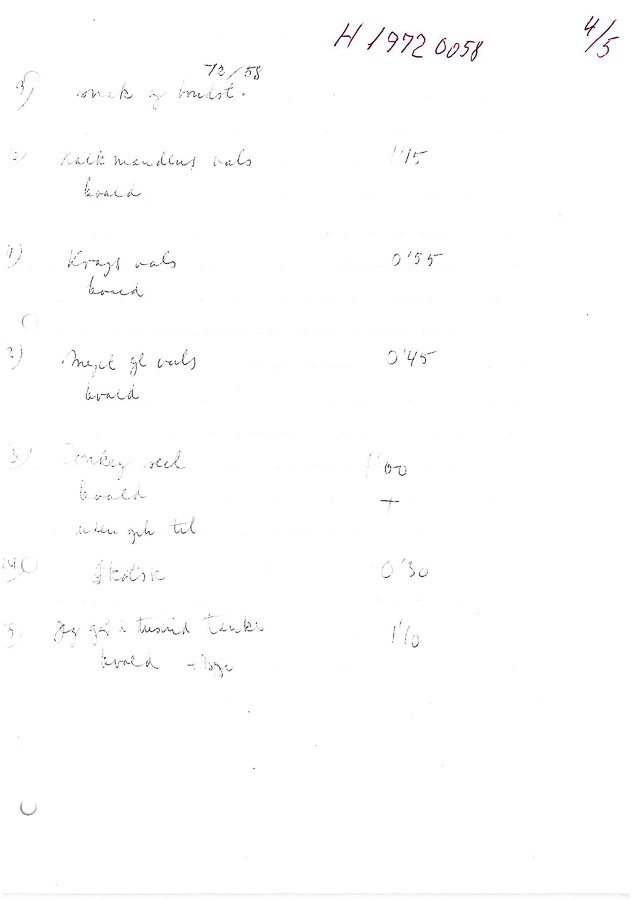 H 1972 0058 4/5
72/58
9)
Kalkmandens vals 1'15
kvaed
1) Krags vals 0'55
kvaed
2) Meget gl vals 0'45
kvaed
3) Donkey reel 1'00
kvaed +
uden gh til
14) Skotsk 0'30
5) Jeg går i tusind tanker 1'10
kvaed